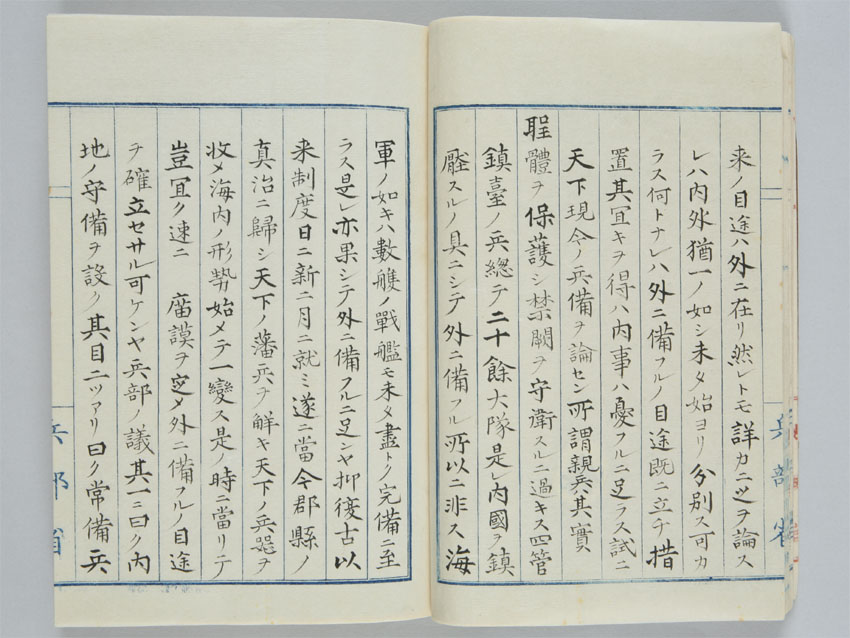 来ノ目途ハ外ニ在リ然レトモ詳カニ之ヲ論ス
レハ内外猶一ノ如シ未タ始ヨリ分別ス可カ
ラス何トナレハ外ニ備フルノ目途既ニ立チ措
置其冝キヲ得ハ内事ハ憂フルニ足ラス試ニ
天下現今ノ兵備ヲ論セン所謂親兵其實
聖體ヲ保護シ禁闕ヲ守衛スルニ過キス四管
鎮臺ノ兵總テ二十餘大隊是レ内國ヲ鎮
壓スルノ具ニシテ外ニ備フル所以ニ非ス海
軍ノ如キハ數艘ノ戰艦モ未タ盡トク完備ニ至
ラス是レ亦果シテ外ニ備フルニ足ンヤ抑復古以
来制度日ニ新ニ月ニ就ミ遂ニ當今郡縣ノ
真治ニ歸シ天下ノ藩兵ヲ解キ天下ノ兵器ヲ
收メ海内ノ形勢始メテ一變ス是ノ時ニ當リテ
豈冝ク速ニ 庿謨ヲ定メ外ニ備フルノ目途
ヲ確立セサル可ケンヤ兵部ノ議其一ニ曰ク内
地ノ守備ヲ設ク其目二ツアリ曰ク常備兵
兵部省
兵部省